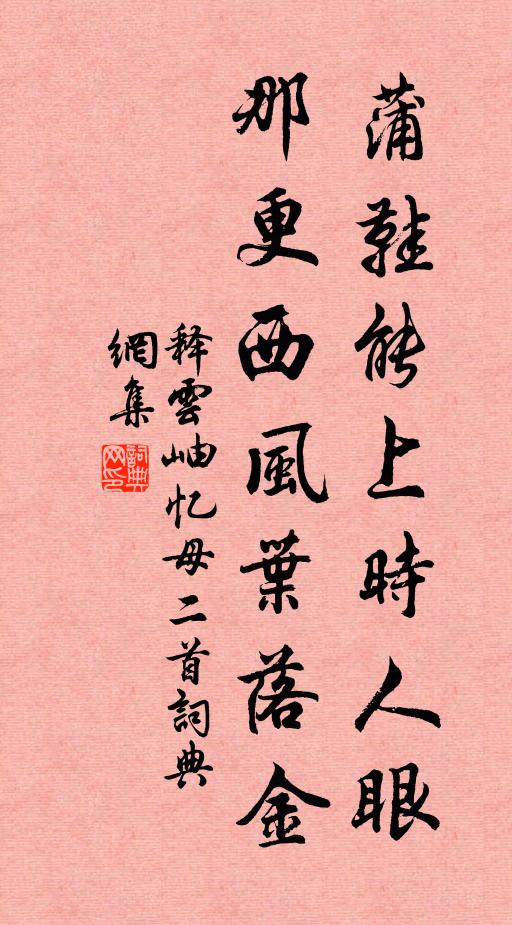 蒲鞋能上時人眼
那更西風葉落金
释雲岫忆母二首詞典
網集
詞典
网印